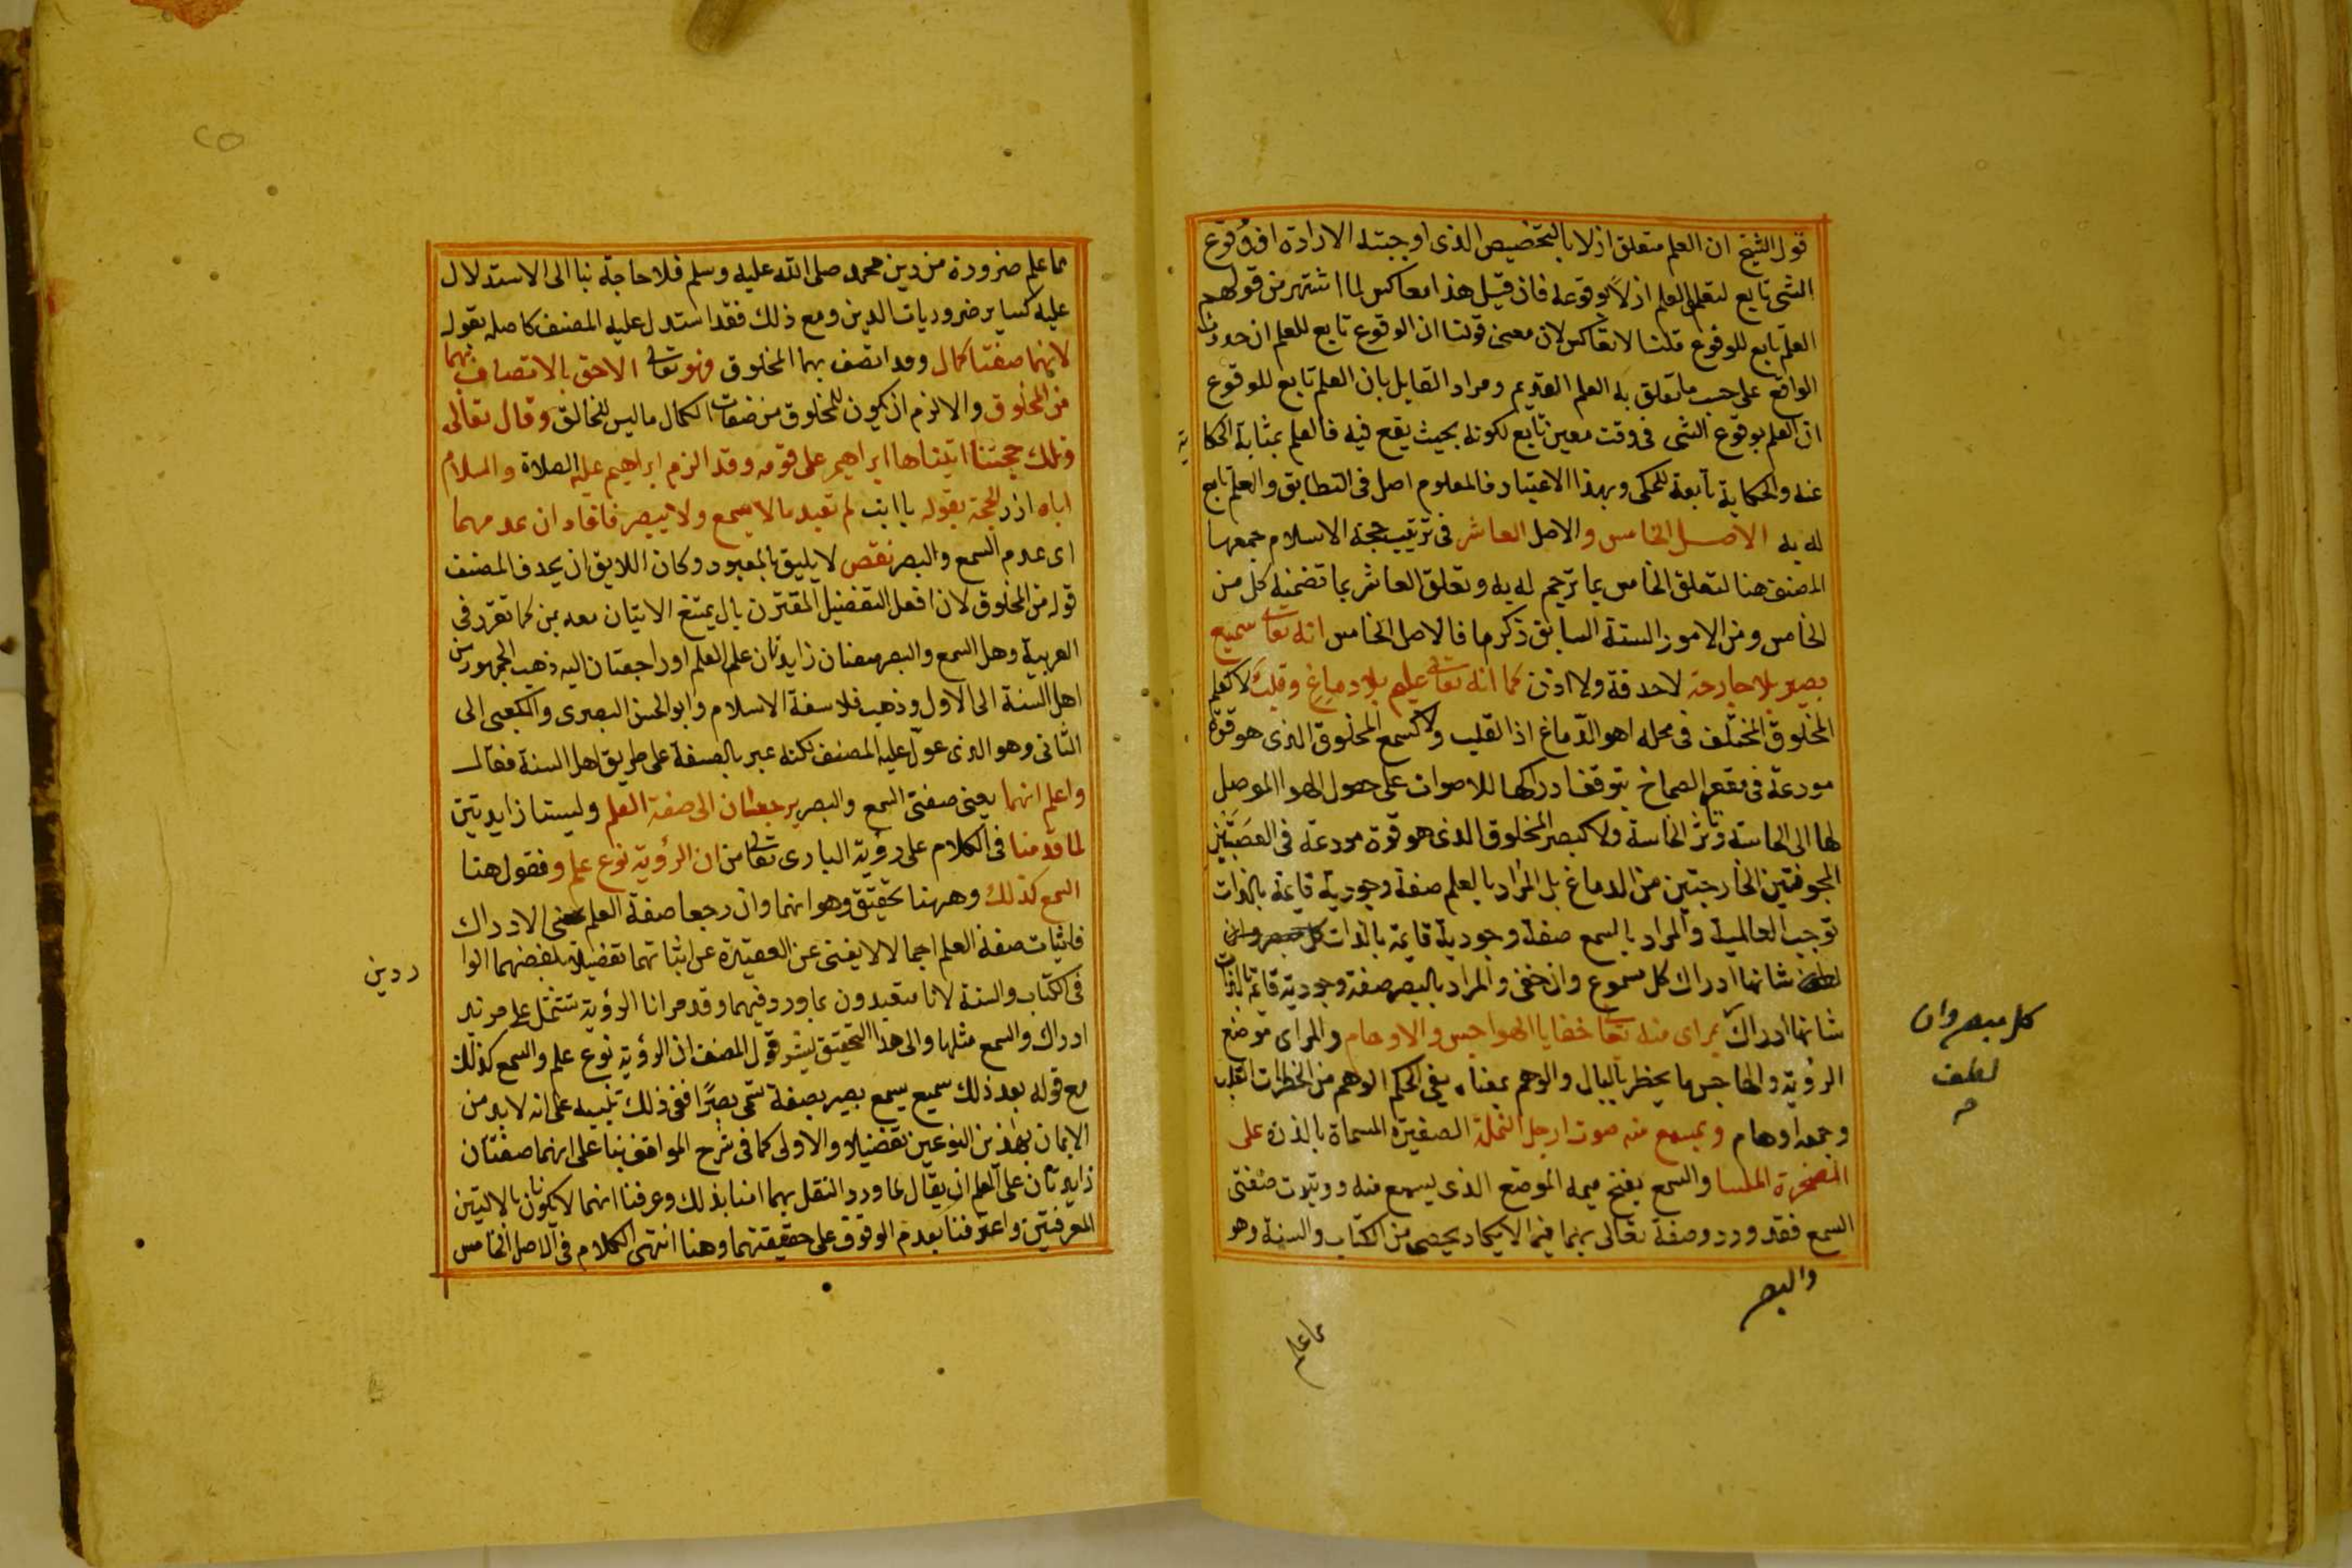 قول الشيخ ان العلم متعلق ازلا بالتخصيص الذى اوجبته الارادة اذ وقوع
الشى تابع لتعلق العلم ازلا بوقوعه فان قيل هذا معاكس لما اشتهر من قولهم
العلم تابع للوقوع قلنا لا تعاكس لان معنى قولنا ان الوقوع تابع للعلم ان حدوث
الواقع على حسب ما تعلق به العلم القديم ومراد القايل بان العلم تابع للوقوع
ان العلم بوقوع الشى فى وقت معين تابع لكونه بحيث يقع فيه فالعلم بمثابة الحكا
ية
عنه والحكاية تابعة للمحكى وبهذا الاعتبار فالمعلوم اصل فى التطابق والعلم تابع
له به الاصل الخامس والاصل العاشر فى ترتيب حجة الاسلام جمعهما
المصنف هنا لتعلق الخامس بما ترجم له به وتعلق العاشر بما تضمنه كل من
الخامس ومن الامور الستة السابق ذكرها فالاصل الخامس انه تعالى سميع
بصير بلا جارحة لا حدقة ولا اذن كما انه تعالى عليم بلا دماغ وقلب لا كعلم
المخلوق المختلف فى محله اهو الدماغ اذ القلب ولا كسمع المخلوق الذى هو قوة
مودعة فى مقعر الصماخ يتوقف ادراكها للاصوات على حصول الهوا الموصل
لها الى الحاسة وتاثر الحاسة ولا كبصر المخلوق الذى هو قوة مودعة فى العصبتين
المجوفتين الخارجتين من الدماغ بل المراد بالعلم صفة وجودية قايمة بالذات
توجب العالمية والمراد بالسمع صفة وجودية قايمة بالذات
شانها ادراك كل مسموع وان خفى والمراد بالبصر صفة وجودية قايمة بالذات
شانها ادراك بمراى منه تعالى خفايا الهواجس والاوهام والمراى موضع
كل مبصر وان
لطف
الرؤية والهاجس ما يخطر بالبال والوهم بمعناه يفى الحكم الوهم من الخطرات القلب
وجمعه اوهام وبمسمع منه صوت ارجل النملة الصغيرة المسماة بالذرة على
الصخرة الملسا والسمع بفتح ميمه الموضع الذى يسمع منه وويثبت صفتى
السمع فقد ورد وصفه تعالى بهما فيما لا يكاد يحصى من الكتاب والسنة وهو
والبصر
مما علم
مما علم ضرورة من دين محمد صلى الله عليه وسلم فلا حاجة بنا الى الاستدلال
عليه كساير ضروريات الدين ومع ذلك فقد استدل عليه المصنف كاصله بقوله
لانهما صفتا كمال وقد اتصف بهما المخلوق فهو تعالى الاحق بالاتصاف بهما
من المخلوق والا لزم ان يكون للمخلوق من صفات الكمال ما ليس للخالق وقال تعالى
وتلك حجتنا اتيناها ابراهيم على قومه وقد الزم ابراهيم عليه الصلاة والسلام
اباه ازر الحجة بقوله يا ابت لم تعبد ما لا يسمع ولا يبصر فافاد ان عدمهما
اى عدم السمع والبصر نقص لا يليق بالمعبود وكان اللايق ان يحذف المصنف
قوله من المخلوق لان افعل التفضيل المقترن بال يمتنع الاتيان معه بمن كما تقرر فى
العربية وهل السمع والبصر صفتان زايدتان علم العلم او راجعتان اليه ذهب الجمهور من
اهل السنة الى الاول وذهب فلاسفة الاسلام وابو الحسن البصرى والكعبى الى
الثانى وهو الذى عول عليه المصنف لكنه عبر بالصفة على طريق اهل السنة فقال
واعلم انهما يعنى صفتى السمع والبصر يرجعان الى صفة العلم وليستا زايدتين
لما قدمنا فى الكلام على رؤية البارى تعالى من ان الرؤية نوع علم وفقول هنا
السمع كذلك وههنا تحقيق وهو انهما وان رجعا صفة العلم بمعنى الادراك
فاثبات صفة العلم اجمالا لا يغنى عن العقيدة عن اثباتهما تفصيلا بلفظهما الوا
ردين
فى الكتاب والسنة لانا متعبدون بما ورد فيهما وقد مر انا الرؤية تشتمل على مزيد
ادراك والسمع مثلها والى هذا التحقيق يشير قول المصنف ان الرؤية نوع علم والسمع كذلك
مع قوله بعد ذلك سميع بسمع بصير بصفة تسمى بصرا ففى ذلك تنبيه على انه لا بد من
الايمان بهذين النوعين تفصيلا والاولى كما فى شرح المواقف بنا على انهما صفتان
زايدتان على العلم ان يقال لما ورد النقل بهما امنا بذلك وعرفنا انهما لا يكونان بالالتين
المعرفتين واعترفنا بعدم الوقوف على حقيقتهما وهنا انتهى الكلام فى الاصل الخامس